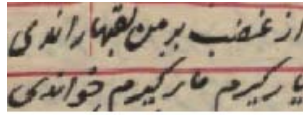 از غضب بر من لقبها راندی
یار گیرم مار گیرم خواندی